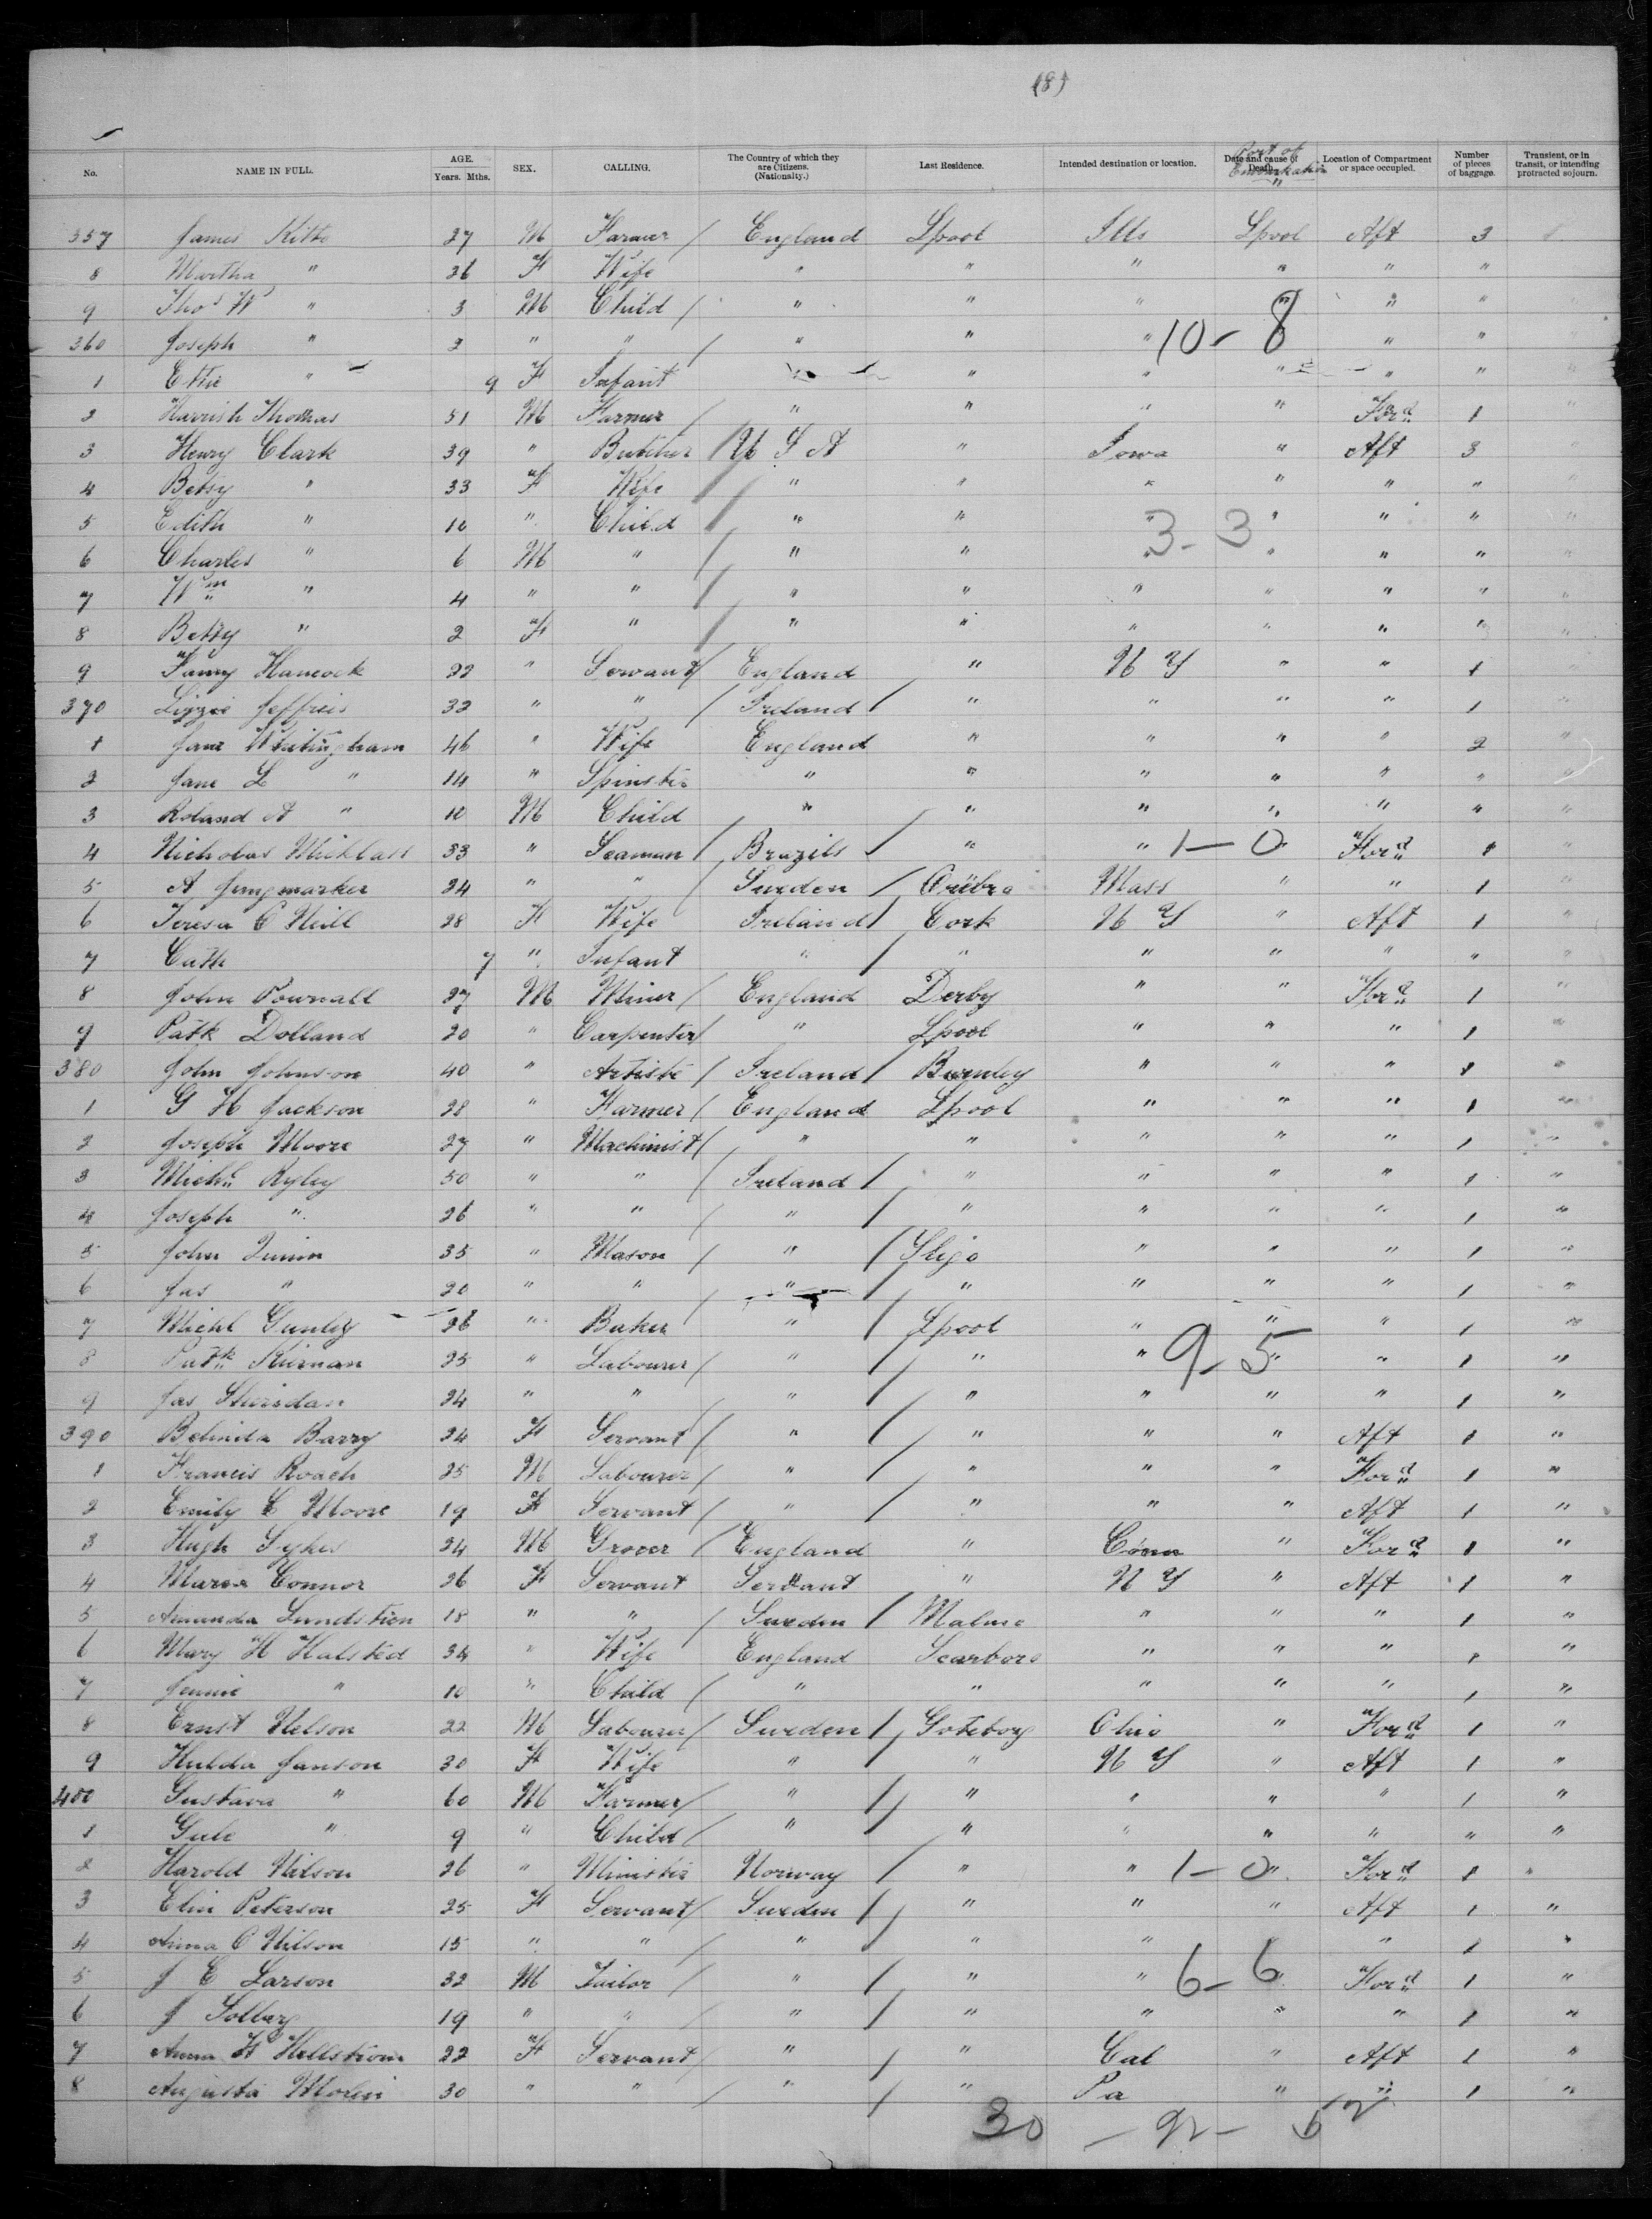 (8)
No. NAME IN FULL. AGE. Years. Mths. SEX. CALLING. The Country of which they are Citizens. (Nationalty.) Last Residence. Intended destination or location. Date and cause of Death. Port of Embarkation Location of Compartment or space occupied. Number of pieces of baggage. Transient, or in transit, or intending protracted sojourn.
357 James Kitto 27 M Farmer / England Lpool Ills Lpool Aft 3
8 Martha " 26 F Wife " " " " " "
9 Thos W " 3 M Child / " " " " " "
360 Joseph " 2 " " / " " " " " "
10 - 8
1 Ettie " 9 F Infant " " " " " "
2 Harrish Thomas 51 M Farmer / " " " " Ford 1 "
3 Henry Clark 39 " Butcher / U S A " Iowa " Aft 3 "
4 Betsy " 33 F Wife / " " " " " " "
5 Edith " 10 " Child / " " " " " " "
3 - 3
6 Charles " 6 M " / " " " " " " "
7 Wm " 4 " " / " " " " " " "
8 Betsy " 2 F " / " " " " " " "
9 Fanny Hancock 22 " Servant / England " N Y " " 1 "
370 Lizzie Jeffries 32 " " / Ireland / " " " " 1 "
1 Jane Whitingham 46 " Wife England " " " " 2 "
2 Jane L " 14 " Spinster " " " " " " "
3 Roland A " 10 M Child " " " " " " "
4 Nicholas Micklass 33 " Seaman / Brazils / " " 1 - 0 " Ford 1 "
5 A Jungmarker 24 " " / Sweden / Orebro Mass " " 1 "
6 Teresa O Neill 28 F Wife Ireland / Cork N Y " Aft 1 "
7 Cath 7 " Infant " / " " " " " "
8 John Pownall 27 M Miner / England Derby " " Ford 1 "
9 Patk Dolland 20 " Carpenter / " Lpool " " " 1 "
380 John Johnson 40 " Artiste / Ireland / Burnley " " " 1 "
1 G H Jackson 28 " Farmer / England Lpool " " " 1 "
2 Joseph Moore 27 " Machinist / " " " " " 1 "
3 Michl Ryley 50 " " / Ireland / " " " " 1 "
4 Joseph " 26 " " / " / " " " " 1 "
5 John Quinn 35 " Mason / " / Sligo " " " 1 "
6 Jas " 20 " " / " / " " " " 1 "
7 Michl 26 " Baker / " / Lpool " " " 1 "
8 Patk Kiernan 25 " Labourer / " / " " 9 - 5 " " 1 "
9 Jas Sheridan 24 " " / " / " " " " 1 "
390 Belinda Barry 24 F Servant / " / " " " Aft 1 "
1 Francis Roach 25 M Labourer / " / " " " Ford 1 "
2 Emily C Moore 19 F Servant / " / " " " Aft 1 "
3 Hugh Sykes 24 M Grocer / England " Conn " Ford 1 "
4 Maria Connor 26 F Servant Servant " N Y " Aft 1 "
5 Amanda 18 " " / Sweden / Malmo " " " 1 "
6 Mary H Halsted 34 " Wife England Scarboro " " " 1 "
7 Jennie " 10 " Child / " " " " " 1 "
8 Ernst Nelson 22 M Labourer / Sweden / Goteborg Ohio " Ford 1 "
9 Hulda Janson 30 F Wife " / " N Y " Aft 1 "
400 Gustava " 60 M Farmer / " / " " " " 1 "
1 " 9 " Child / " / " " " " " "
2 Harold Nilson 26 " Minister Norway / " " 1 - 0 " Ford 1 "
3 Elin Peterson 25 F Servant / Sweden / " " " Aft 1 "
4 Anna C Nilson 15 " " / " / " " " " 1 "
5 J E Larson 32 M Tailor / " / " " 6 - 6 " Ford 1 "
6 J 19 " " / " / " " " " 1 "
7 Anna H Hellstrom 22 F Servant / " / " Cal " Aft 1 "
8 Augusta 30 " " / " / " Pa " " 1 "
30 - 92 -